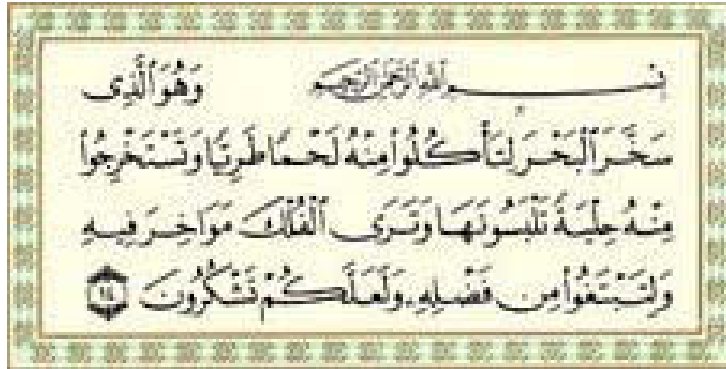 بِسْمِ اللَّهِ الرَّحْمَٰنِ الرَّحِيمِ وَهُوَ الَّذِى
سَخَّرَ الْبَحْرَ لِتَأْكُلُوا۟ مِنْهُ لَحْمًا طَرِيًّا وَتَسْتَخْرِجُوا۟
مِنْهُ حِلْيَةً تَلْبَسُونَهَا وَتَرَى الْفُلْكَ مَوَاخِرَ فِيهِ
وَلِتَبْتَغُوا۟ مِن فَضْلِهِ وَلَعَلَّكُمْ تَشْكُرُونَ ١٤